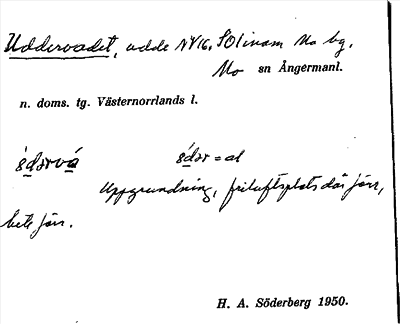 Uddervadet, udde NV16, SO inom Mo bg.
Mo sn Ångermanl.
n. doms. tg. Västernorrlands l.
ùdərvá údər = al
Uppgrundning, friluftsplats där förr,
bete förr.
H. A. Söderberg 1950.